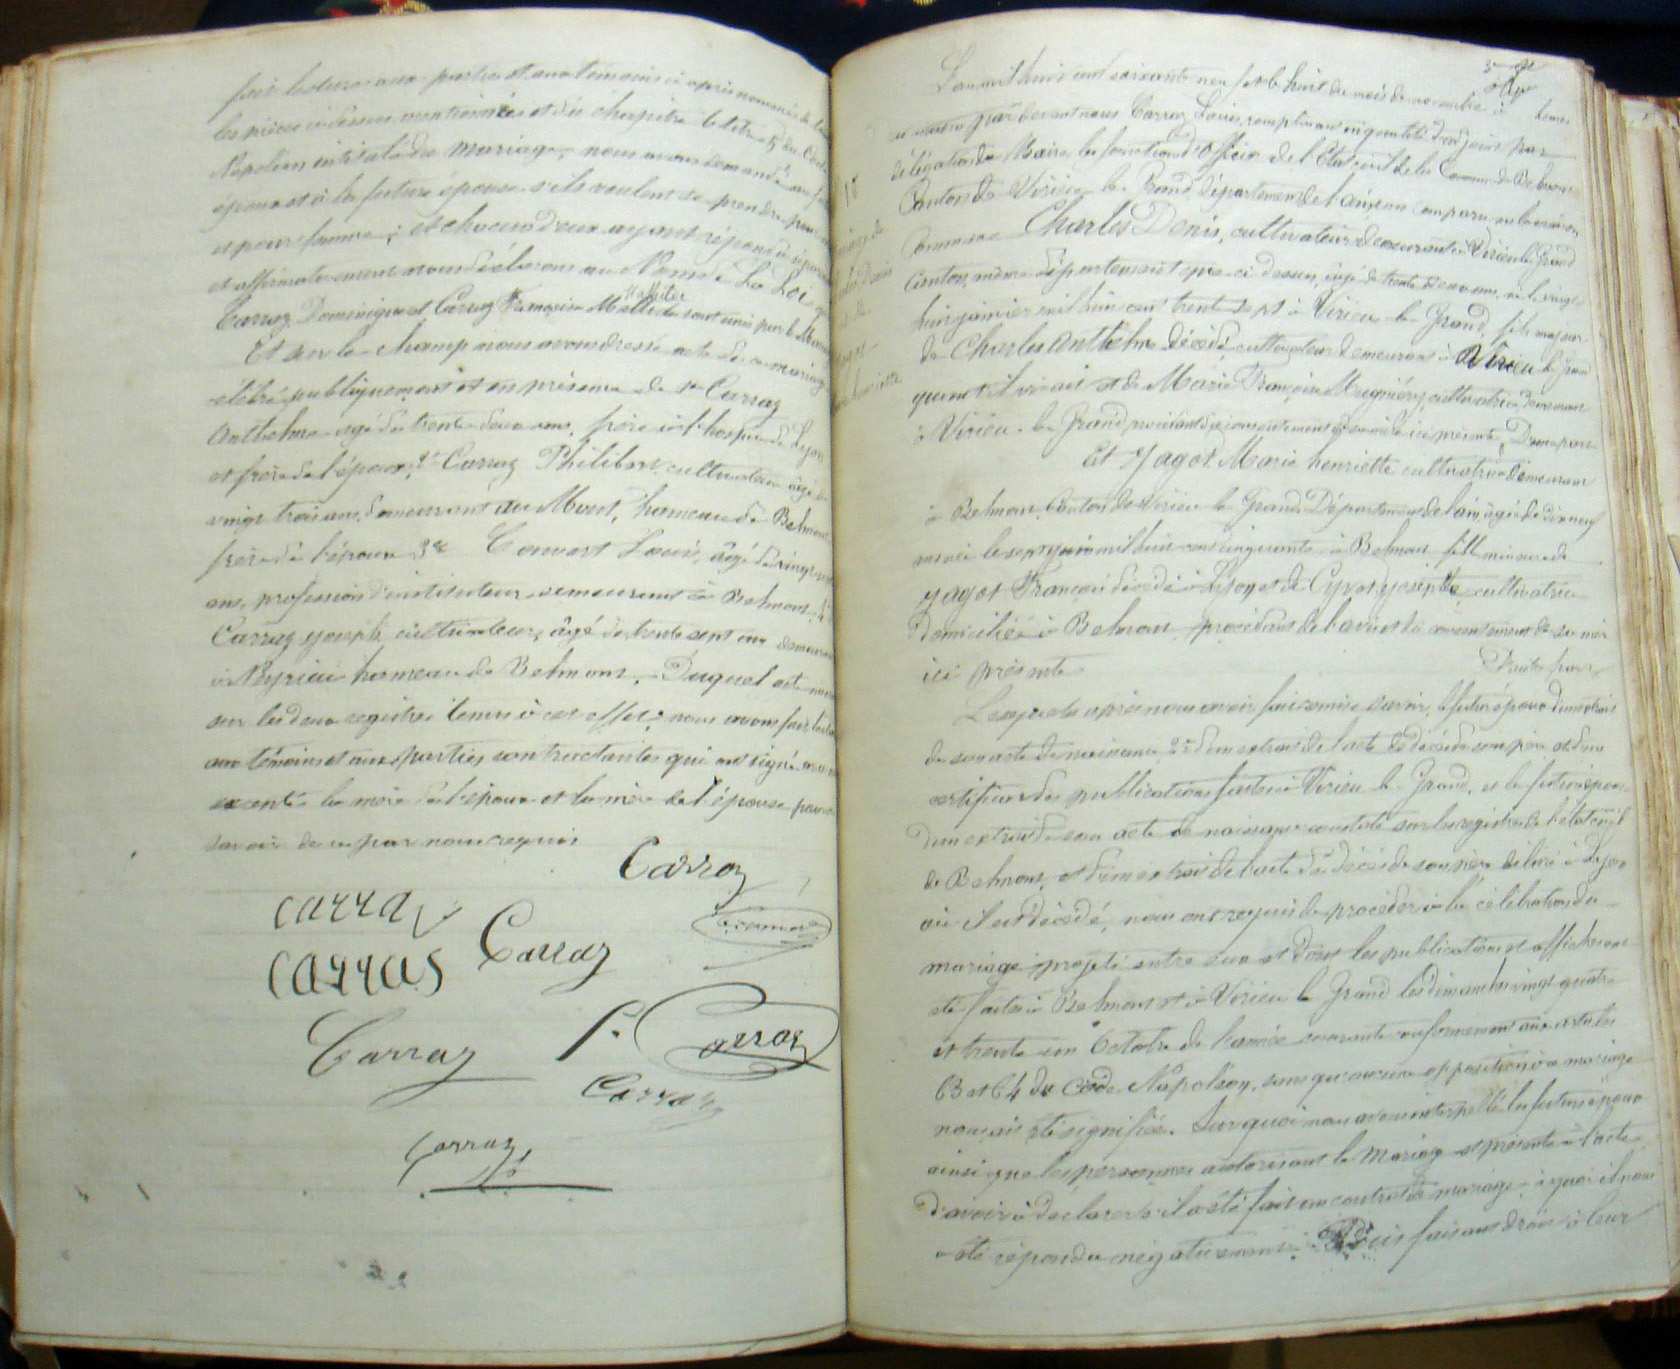 fait lecture aux parties et aux témoins ci après nommés de toutes
les pièces ci dessus mentionnées et du chapitre 6 titre 5 du Code
Napoléon intitulé du mariage, nous avons demandé au futur
époux et à la future épouse s'ils veulent se prendre pour mari
et pour femme ; et chacun d'eux ayant répondu séparément
et affirmativement nous déclarons au Nom de La Loi que
Carraz Dominique et Carraz Françoise sont unis par le Mariage
Et sur le champ nous avons dressé acte de ce mariage
célébré publiquement et en présence de 1er Carraz
Anthelme âgé de trente deux ans, frère à l'hospice de Lyon
et frère de l'époux, 2e Carraz Philibert cultivateur âgé de
vingt trois ans, demeurant au Mont, hameau de Belmont
frère de l'époux 3e Convert Louis, âgé de vingt
ans, profession d'instituteur demeurant à Belmont, 4e
Carraz Joseph, cultivateur, âgé de trente sept ans demeurant
à hameau de Belmont. Duquel acte
sur les deux registres tenus à cet effet ; nous avons fait lecture
aux témoins et aux parties contractantes qui ont signé avec nous
excepté la mère de l'époux et la mère de l'épouse pour
savoir de ce par nous requis
Carraz
carraz
Carraz
carras
Carraz
P. Carraz
Carraz
Carraz
L'an mil huit cent soixante neuf et le huit du mois de novembre à heures
du matin par devant nous Carraz Louis, remplissant en qualité d'adjoint par
délégation du Maire, les fonctions d'officier de l'état civil de la Commune de Belmont
Canton de Virieu le Grand, département de l'ain, son comparu en la maison
Commune Charles Denis, cultivateur demeurant à Virieu le Grand
Canton, même département que ci dessus, âgé de trente deux ans, né le vingt
huit janvier mil huit cent trente sept à Virieu le Grand, fils majeur
de Charles Anthelme décédé, cultivateur demeurant à Virieu le Grand
quand il vivait et de Marie Françoise cultivatrice, demeurant
à Virieu le Grand, procédant du consentement de sa mère ici présente, D'une part
Et Yagot Marie henriette cultivatrice demeurant
à Belmont Canton de Virieu le Grand Département de l'ain, âgée de dix neuf
ans née le sept juin mil huit cent cinquante à Belmont fille mineure de
Yagot François décédé à Lyon et de Cyvot Josephte cultivatrice
domiciliée à Belmont, procédant de l'avis et du consentement de sa mère
ici présente D'autre part
Lesquels après nous avoir fait remise savoir, le futur époux d'un extrait
de son acte de naissance 2e d'un extrait de l'acte de décès de son père et d'un
certificat des publications faites à Virieu le Grand, et la future épouse
d'un extrait de son acte de naissance constaté sur les registres de l'état civil
de Belmont, et d'un extrait de l'acte de décès de son père délivré à Lyon
où il est décédé, nous ont requis de procéder à la célébration du
mariage projeté entre eux et dont les publications et affiches ont
été faites à Belmont et à Virieu le Grand les dimanches vingt quatre
et trente un Octobre de l'année courante conformément aux articles
63 et 64 du Code Napoléon, sans qu'aucune opposition à ce mariage
nous ait été signifiée. Sur quoi nous avons interpellé les futurs époux
ainsi que les personnes autorisant le Mariage et présentes à l'acte
d'avoir à déclarer s'il a été fait un contrat de mariage, à quoi il nous
a été répondu négativement. Puis faisant droit à leur